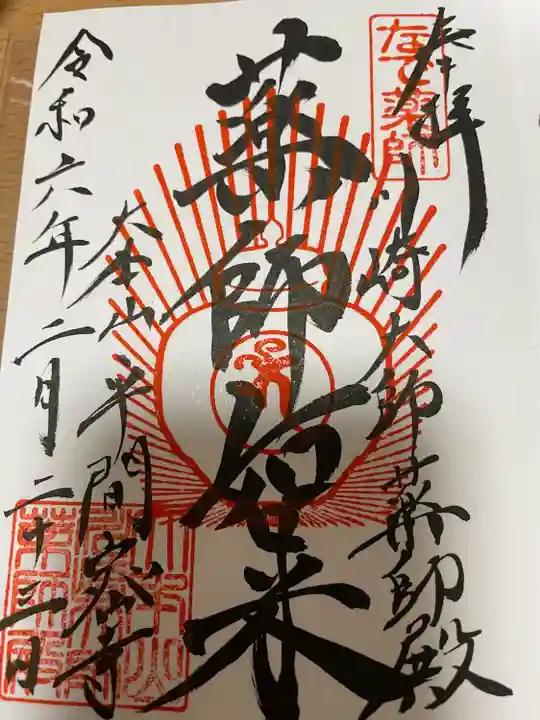 奉拝
なで薬師
川崎大師薬師殿
薬師如来
大本山平間密寺
令和六年二月二十三日